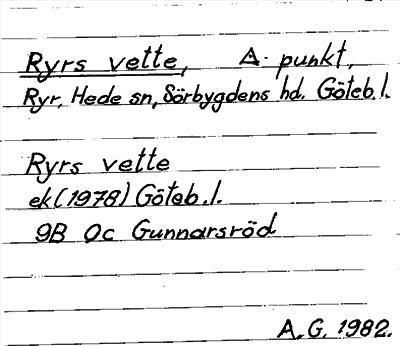 Ryrs vette, A-punkt,
Ryr, Hede sn, Sörbygdens hd. Göteb.l.
Ryrs vette
ek (1978) Göteb.l.
9B 0c Gunnarsröd
A.G. 1982.